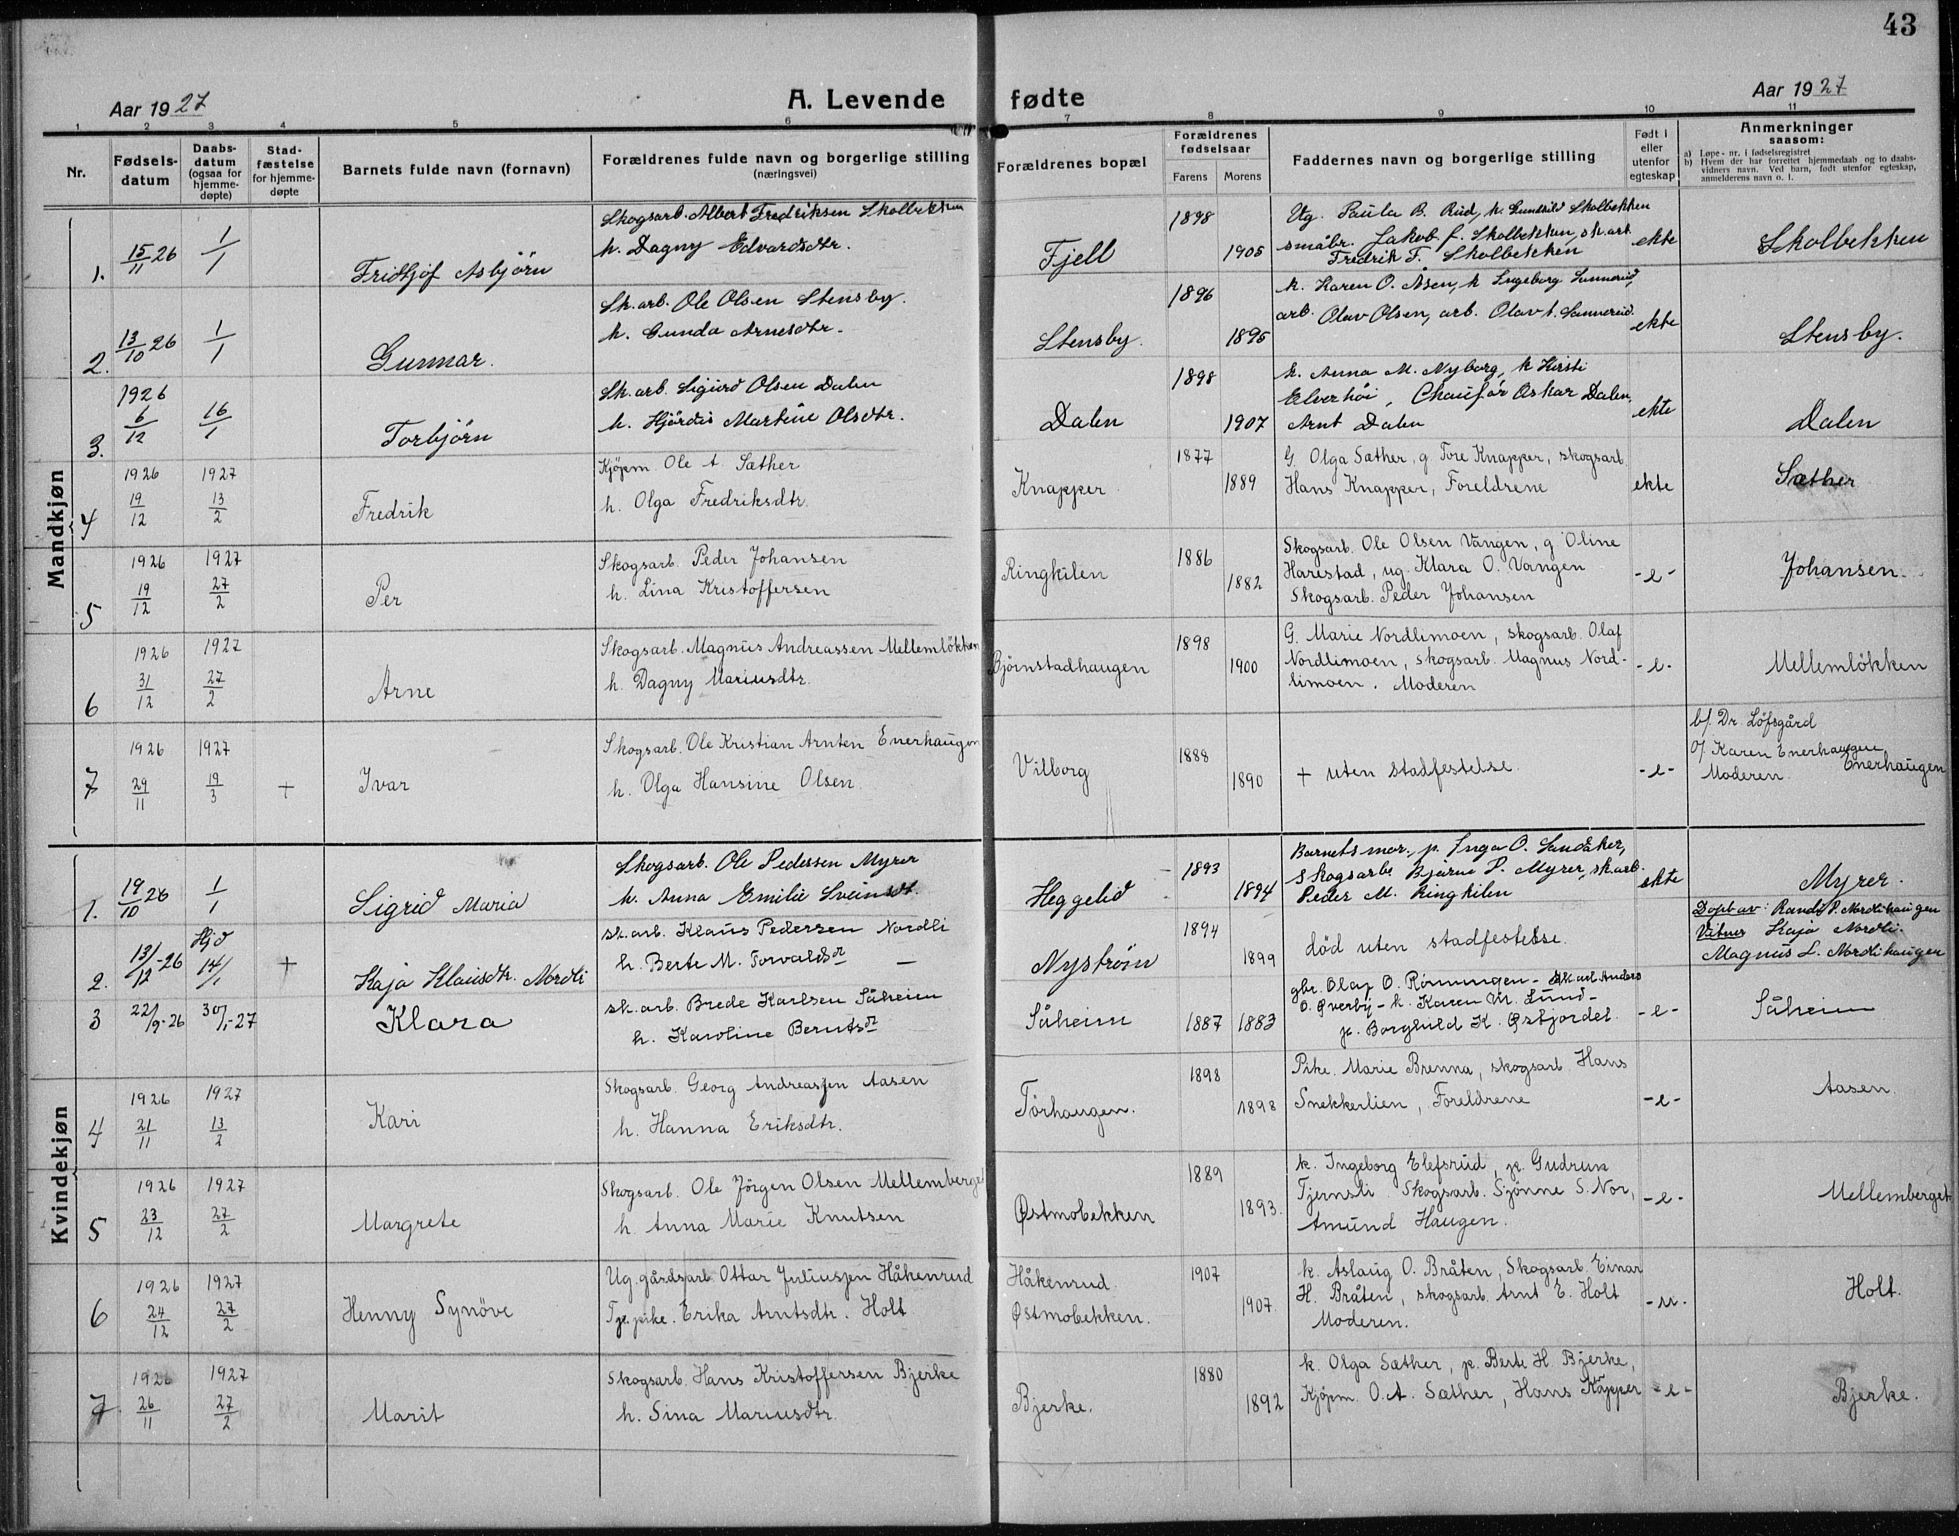 43
Aar 1927
A. Levende fødte
Aar 1927
1 2 3 4 5 6 7 8 9 10 11
Nr.
Fødsels-
datum
Daabs-
datum
(ogsaa for
hjemme-
døpte)
Stad-
fæstelse
for hjemme-
døpte
Barnets fulde navn (fornavn)
Forældrenes fulde navn og borgerlige stilling
(næringsvei)
Forældrenes bopæl
Forældrenes
fødselsaar
Farens
Morens
Faddernes navn og borgerlige stilling
Født i
eller
utenfor
egteskap
Anmerkninger
saasom:
a) Løpe-nr. i fødselsregistret
b) Hvem der har forrettet hjemmedaab og to daabs-
vidners navn. Ved barn, født utenfor egteskap,
anmelderens navn o. l.
Mandkjøn
1. 15/11 26 1/1 Fridtjof Asbjörn
Skogsarb. Albert Fredriksen Skolbekken
h. Dagny Edvardsdtr.
Fjell 1898 1905
Ug. Paula B. Rud, k. Gunhild Skolbekken
småbr. Jakob F. Skolbekken, sk.arb.
Fredrik F. Skolbekken
ekte Skolbekken
2. 13/10 26 1/1 Gunnar.
Sk.arb. Ole Olsen Stensby.
h. Gunda Arnesdtr.
Stensby. 1896 1895
k. Karen O. Åsen, k Ingeborg Sannerud,
arb. Olav Olsen, arb. Olav t. Sannerud
ekte Stensby.
3. 1926 6/12 16/1 Torbjörn
Sk.arb. Sigurd Olsen Dalen
h. Hjördis Martine Olsdtr.
Dalen 1898 1907
k. Anna M. Nyborg, k Kirsti
Elverhöi, Chauför Oskar Dalen,
Arnt Dalen
ekte Dalen
4 1926 19/12 1927 13/2 Fredrik
Kjöpm Ole A Sæther
h. Olga Fredriksdtr.
Knapper 1877 1889
G. Olga Sæther, g Tore Knapper, skogsarb.
Hans Knapper, Foreldrene
ekte Sæther
5 1926 19/12 1927 27/2 Per
Skogsarb. Peder Johansen
h. Lina Kristoffersen
Ringkilen 1886 1882
Skogsarb. Ole Olsen Vangen, g Oline
Harestad, ug. Klara O. Vangen
Skogsarb. Peder Johansen
-e- Johansen.
6 1926 31/12 1927 27/2 Arne
Skogsarb. Magnus Andreassen Mellemlökken
h. Dagny Mariusdtr.
Björnstadhaugen 1898 1900
G. Marie Nordlimoen, skogsarb. Olaf
Nordlimoen, skogsarb. Magnus Nord-
limoen. Moderen
-e- Mellemlökken
7 1926 29/11 1927 19/3 + Ivar
Skogsarb. Ole Kristian Arnten Enerhaugen
h. Olga Hansine Olsen.
Vilborg 1888 1890
+ uten stadfestelse.
-e-
b/. Dr. Löfsgård
o/ Karen Enerhaugen
Moderen. Enerhaugen
Kvindekjøn
1. 19/10 26 1/1 Sigrid Maria
Skogsarb. Ole Pedersen Myrer
h. Anna Emilie Sveinsdt.
Heggelid 1893 1894
Barnets mor, p. Inga O. Sandaker,
Skogsarb. Bjarne P. Myrer, sk.arb.
Peder M. Ringkilen
ekte Myrer.
2. 13/12-26 Hjd 14/1 + Kaja Klausdtr. Nordli
sk.arb. Klaus Pedersen Nordli
h. Berte M. Torvaldsdtr
Nyström 1894 1899
död uten stadfestelse.
Döpt av: Randi P. Nordlihaugen
Vitner Kaja Nordli.
Magnus L. Nordlihaugen
3 22/9-26 30/1-27 Klara
sk.arb. Brede Karlsen Såheim
h. Karoline Berntsdtr
Såheim 1887 1883
gbr. Olaf O. Rönningen- sk.arb Anders
O. Øverby- k. Karen M. Lund-
p. Borghild K. Østfjordet.
-e- Såheim
4 1926 21/11 1927 13/2 Kari
Skogsarb. Georg Andreassen Aasen
h. Hanna Eriksdtr.
Törhaugen. 1898 1898
Pike. Marie Brenna, skogsarb. Hans
Snekkerlien, Foreldrene
-e- Aasen.
5 1926 23/12 1927 27/2 Margrete
Skogsarb. Ole Jörgen Olsen Mellemberget
h. Anna Marie Knutsen
Østmobekken 1889 1893.
k. Ingeborg Elefsrud, p. Gudrun
Tjernsli. Skogsarb. Sjönne S. Nor,
Amund Haugen.
-e- Mellemberget
6 1926 24/12 1927 27/2 Henny Synöve
Ug. gårdsarb. Ottar Juliussen Håkenrud
Tj. pike. Erika Arntsdtr. Holt
Håkenrud.
Østmobekken. 1907 1907.
k. Aslaug O. Bråten, Skogsarb. Einar
H. Bråten, skogsarb. Arnt E. Holt
Moderen.
-u- Holt.
7 1926 26/11 1927 27/2 Marit
Skogsarb. Hans Kristoffersen Bjerke
h. Sina Mariusdtr.
Bjerke. 1880 1892
k. Olga Sæther, p. Berte H. Bjerke,
Kjöpm. O. A. Sæther, Hans Knapper
-e- Bjerke.